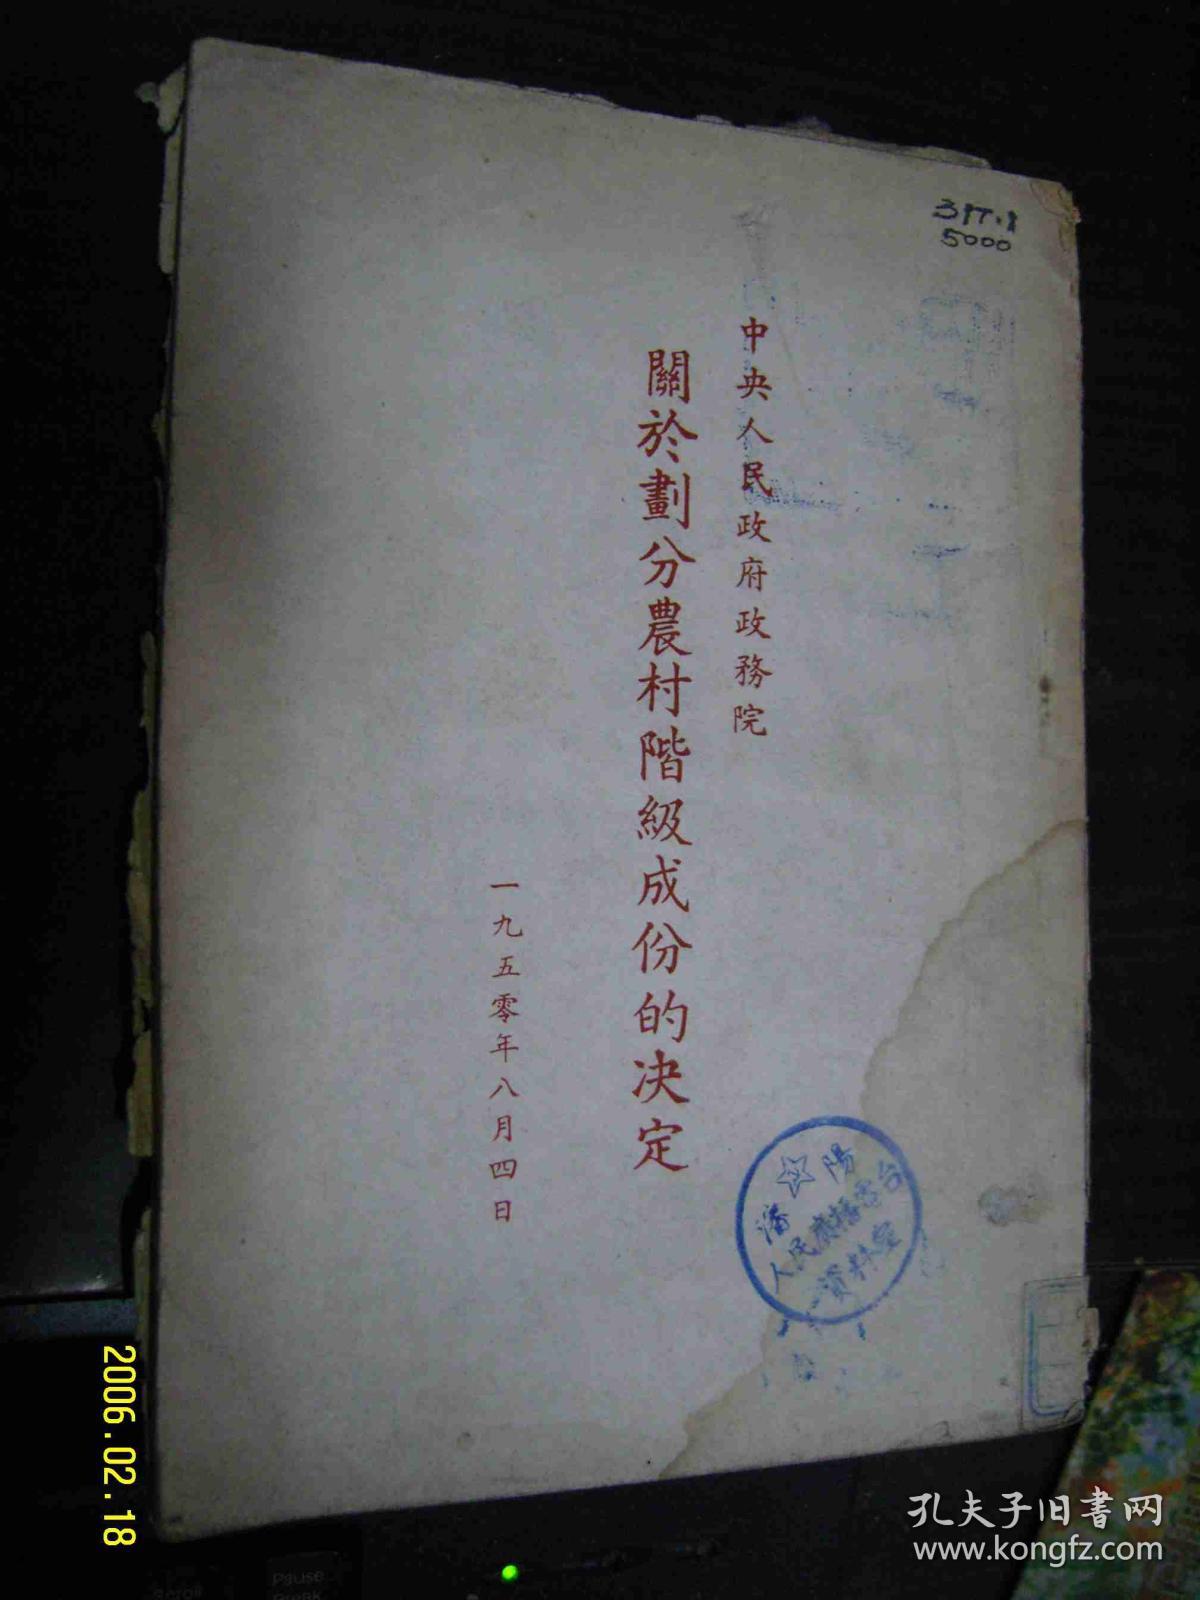 中央人民政府政務院
關於劃分農村階級成份的决定
一九五零年八月四日
5000
瀋陽
人民廣播電台
資料室
2006.02.18
Pause
孔夫子旧書网
www.kongfz.com